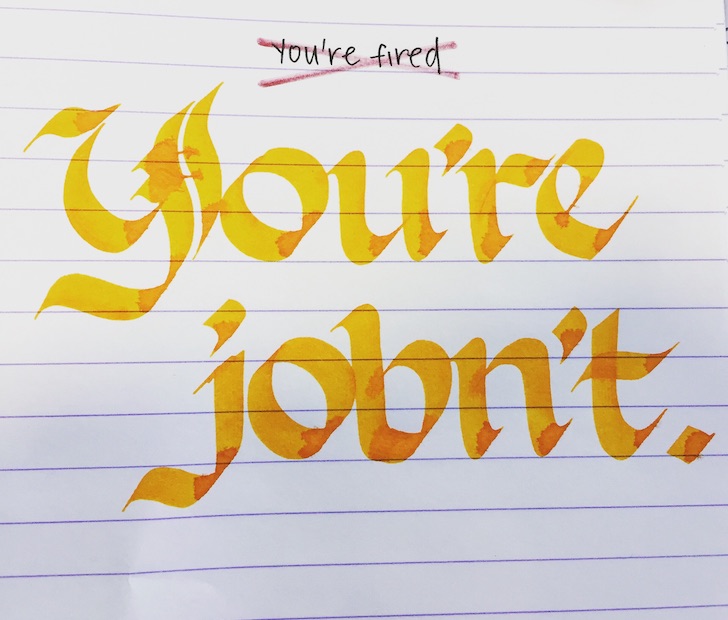 You're fired
You're
jobn't.